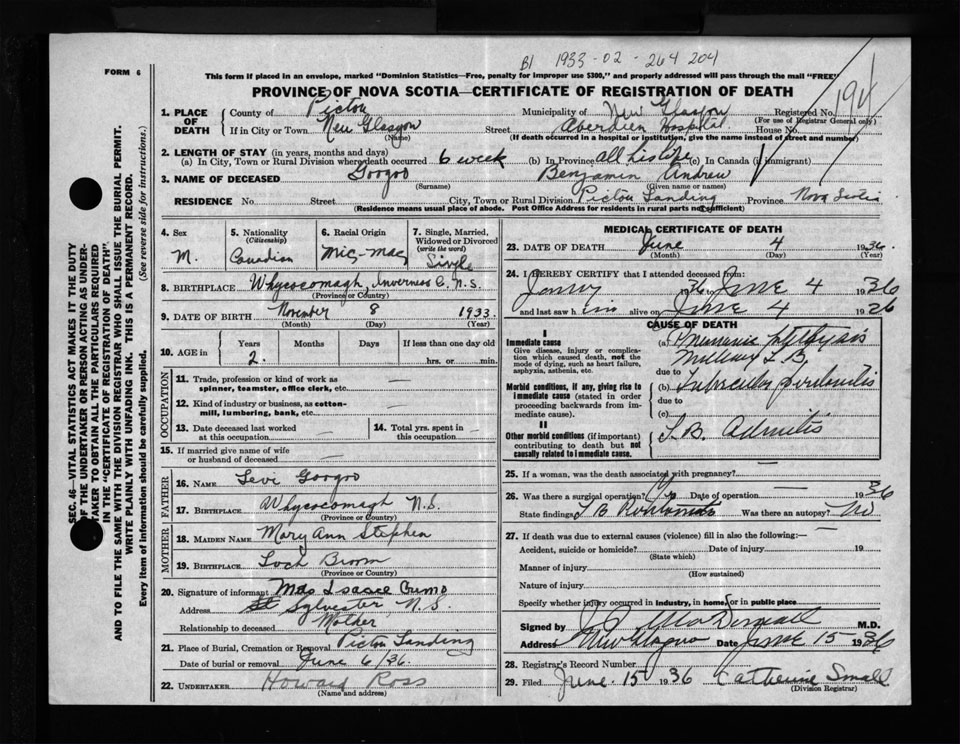 B1 1933-02-264 204
FORM 6
This form if placed in an envelope, marked "Dominion Statistics—Free, penalty for improper use $300," and properly addressed will pass through the mail "FREE"
PROVINCE OF NOVA SCOTIA—CERTIFICATE OF REGISTRATION OF DEATH
194
1. PLACE OF DEATH
County of Pictou Municipality of New Glasgow Registered No.
(For use of Registrar General only)
If in City or Town New Glasgow Street Aberdeen Hospital House No.
(Name) (If death occurred in a hospital or institution, give the name instead of street and number)
2. LENGTH OF STAY (in years, months and days)
(a) In City, Town or Rural Division where death occurred 6 week (b) In Province all his life (c) In Canada (if immigrant)
3. NAME OF DECEASED Googoo Benjamin Andrew
(Surname) (Given name or names)
RESIDENCE No. Street City, Town or Rural Division Pictou Landing Province Nova Scotia
(Residence means usual place of abode. Post Office Address for residents in rural parts not sufficient)
4. Sex
M.
5. Nationality
(Citizenship)
Canadian
6. Racial Origin
Mic-mac
7. Single, Married,
Widowed or Divorced
(write the word)
Single
8. BIRTHPLACE Whycocomagh, Inverness C. N.S.
(Province or Country)
9. DATE OF BIRTH November 8 1933.
(Month) (Day) (Year)
10. AGE in Years Months Days If less than one day old
2. hrs. or min.
OCCUPATION
11. Trade, profession or kind of work as
spinner, teamster, office clerk, etc. —
12. Kind of industry or business, as cotton-
mill, lumbering, bank, etc. —
13. Date deceased last worked
at this occupation —
14. Total yrs. spent in
this occupation —
15. If married give name of wife
or husband of deceased —
FATHER
16. NAME Levi Googoo
17. BIRTHPLACE Whycocomagh N.S.
(Province or Country)
MOTHER
18. MAIDEN NAME Mary Ann Stephen
19. BIRTHPLACE Loch Broom
(Province or Country)
20. Signature of informant Mrs Isaace
Address St Sylvester N.S.
Relationship to deceased Mother
21. Place of Burial, Cremation or Removal Pictou Landing
Date of burial or removal June 6/36.
22. UNDERTAKER Howard Ross
(Name and address)
MEDICAL CERTIFICATE OF DEATH
23. DATE OF DEATH June 4 1936.
(Month) (Day) (Year)
24. I HEREBY CERTIFY that I attended deceased from:
1936 to June 4 1936
and last saw him alive on June 4 1926
CAUSE OF DEATH
I
Immediate cause
Give disease, injury or complica-
tion which caused death, not the
mode of dying, such as heart failure,
asphyxia, asthenia, etc.
Morbid conditions, if any, giving rise to
immediate cause (stated in order
proceeding backwards from im-
mediate cause).
II
Other morbid conditions (if important)
contributing to death but not
causally related to immediate cause.
(a)
T B
due to
(b) Tubercular peritonitis
due to
(c)
T. B. Adenitis
25. If a woman, was the death associated with pregnancy? —
26. Was there a surgical operation? Date of operation 1936
State findings T B Peritonitis Was there an autopsy? No
27. If death was due to external causes (violence) fill in also the following:—
Accident, suicide or homicide? Date of injury 19
(State which)
Manner of injury
(How sustained)
Nature of injury
Specify whether injury occurred in industry, in home, or in public place
Signed by M.D.
Address New Glasgow Date June 15 1936
28. Registrar's Record Number
29. Filed June. 15 1936 Catherine Small
(Division Registrar)
SEC. 46—VITAL STATISTICS ACT MAKES IT THE DUTY
OF THE UNDERTAKER OR PERSON ACTING AS UNDER-
TAKER TO OBTAIN ALL THE PARTICULARS REQUIRED
IN THE "CERTIFICATE OF REGISTRATION OF DEATH".
AND TO FILE THE SAME WITH THE DIVISION REGISTRAR WHO SHALL ISSUE THE BURIAL PERMIT.
WRITE PLAINLY WITH UNFADING INK. THIS IS A PERMANENT RECORD.
Every item of information should be carefully supplied. (See reverse side for instructions.)